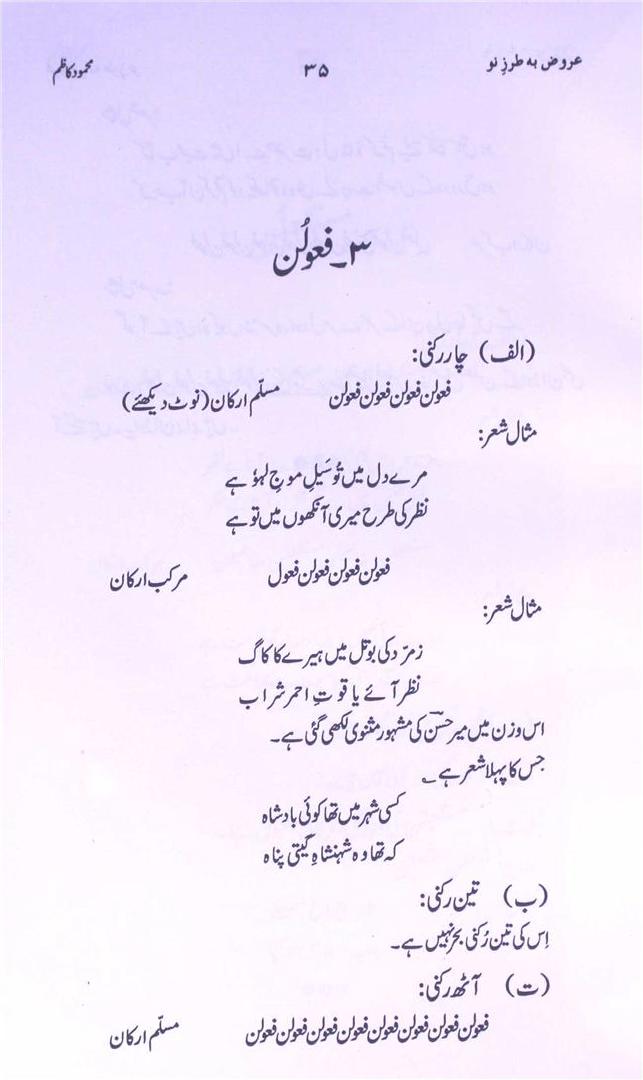 عروض بہ طرزِ نو ۳۵ محمود کاظم
۳۔ فعولُن
(الف) چار رکنی:
فعولن فعولن فعولن فعولن مسلّم ارکان (نوٹ دیکھئے)
مثال شعر:
مرے دل میں تُو سَیلِ موجِ لہوٗ ہے
نظر کی طرح میری آنکھوں میں تو ہے
فعولن فعولن فعولن فعول مرکب ارکان
مثال شعر:
زمرّد کی بوتل میں ہیرے کا کاگ
نظر آئے یاقوتِ احمر شراب
اس وزن میں میر حسنؔ کی مشہور مثنوی لکھی گئی ہے۔
جس کا پہلا شعر ہے ؎
کسی شہر میں تھا کوئی بادشاہ
کہ تھا وہ شہنشاہِ گیتی پناہ
(ب) تین رکنی:
اِس کی تین رُکنی بحر نہیں ہے۔
(ت) آٹھ رکنی:
فعولن فعولن فعولن فعولن فعولن فعولن فعولن فعولن مسلّم ارکان